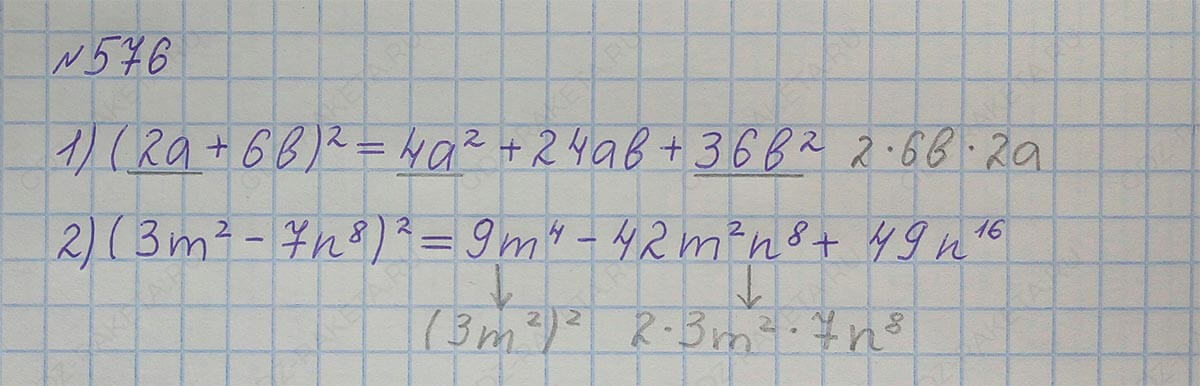 №576
1) (2a + 6b)² = 4a² + 24ab + 36b² 2·6b·2a
2) (3m² - 7n⁸)² = 9m⁴ - 42m²n⁸ + 49n¹⁶
↓ ↓
(3m²)² 2·3m²·7n⁸